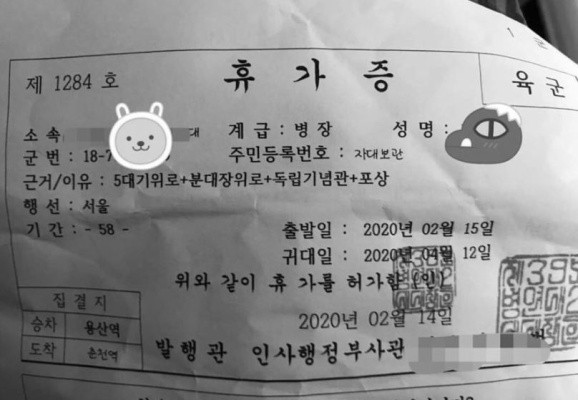 제 1284 호
휴 가 증
육 군
소 속 대 계 급 : 병 장 성 명 :
군 번 : 18-7 주민등록번호 : 자대보관
근거/이유 : 5대기위로+분대장위로+독립기념관+포상
행 선 : 서울
기 간 : - 58 - 출발일 : 2020년 02월 15일
귀대일 : 2020년 04월 12일
위와 같이 휴 가를 허가함 (인)
2020년 02월 14일
집 결 지
승차 용산역
도착 춘천역
발 행 관 인사행정부사관